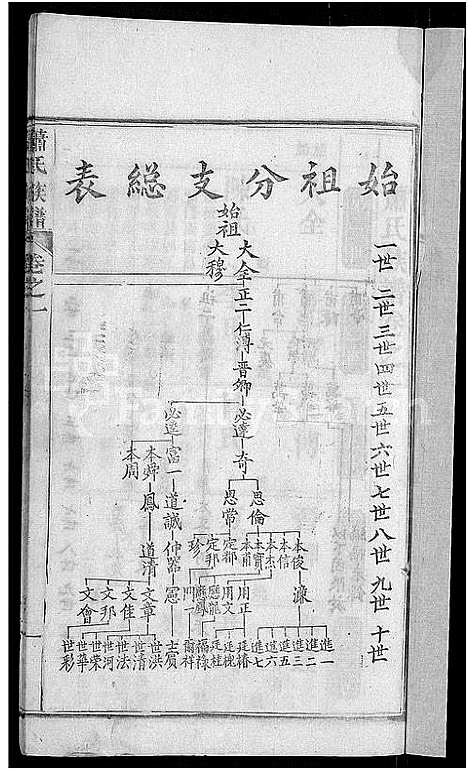 始祖分支総表
一世 二世 三世 四世 五世 六世 七世 八世 九世 十世
始祖
大全 正二 仁溥 晋卿 必達 奇
大穆
思倫
思常
本俊 濂
本信
本杰
本寶
本甫
定都
定邦
珍
必逵
富一 道誠 仲器 憲 士賓
本舜 鳳 道清 文章
本周
文佳
文邦
文會
用正
用文
進一
進二
進三
進五
進六
進七
廷椿
廷槐
廷桂
福祿
爾祥
世洪
世清
世法
世河
世荣
世華
世彩
蕭氏族譜
卷之一